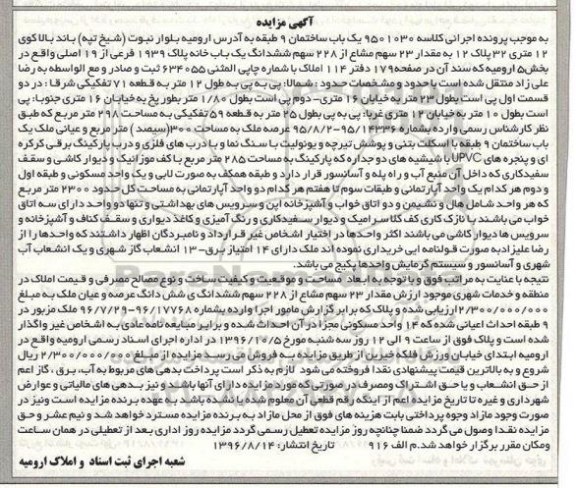 آگهی مزایده
به موجب پرونده اجرائی کلاسه 9501030 یک باب ساختمان 9 طبقه به آدرس ارومیه بلوار نبوت (شیخ تپه) باند بالا کوی
12 متری 32 پلاک 12 به مقدار 23 سهم مشاع از 228 سهم ششدانگ یک باب خانه پلاک 1939 فرعی از 19 اصلی واقع در
بخش 5 ارومیه که سند آن در صفحه 179 دفتر 114 املاک با شماره چاپی المثنی 634055 ثبت و صادر و مع الواسطه به رضا
علی زاد منتقل شده است و حدود و مشخصات حدود: شمالا: پی به پی به طول 12 متر به قطعه 71 تفکیکی شرقا: در دو
قسمت اول پی است بطول 23 متر به خیابان 16 متری- دوم پی است بطول 1/80 متر بطور پخ به خیابان 16 متری جنوبا: پی
است بطول 10 متر به خیابان 12 متری غربا: پی به پی بطول 25 متر به قطعه 59 تفکیکی به مساحت 298 متر مربع که طبق
نظر کارشناس رسمی وارده بشماره 14336-95/8/2-95 عرصه ملک به مساحت 300 (سیصد) متر مربع و عیانی ملک یک
باب ساختمان 9 طبقه با اسکلت بتنی و پوشش تیرچه و یونولیت با سنگ نما و با درب های فلزی و درب پارکینگ برقی کرکره
ای و پنجره های UPVC با شیشه های دو جداره که پارکینگ به مساحت 285 متر مربع با کف موزائیک و دیوار کاشی و سقف
سفیدکاری که داخل آن منبع آب و راه پله و آسانسور قرار دارد و طبقه همکف به صورت لابی و یک واحد مسکونی و طبقه اول
و دوم هر کدام یک واحد آپارتمانی و طبقات سوم تا هفتم هر کدام دو واحد آپارتمانی به مساحت کل حدود 2300 متر مربع
که هر واحد شامل هال و نشیمن و دو اتاق خواب و آشپزخانه اپن و سرویس های بهداشتی و تنها دو واحد دارای سه اتاق
خواب می باشند با نازک کاری کف کلا سرامیک و دیوار سفیدکاری و رنگ آمیزی و کاغذ دیواری و سقف کناف و آشپزخانه و
سرویس ها دیوار کاشی می باشند اکثر واحدها در اختیار اشخاص غیر قرارداد و نامبردگان اظهار داشتند که واحدها را از
رضا علیزاد به صورت قولنامه ایی خریداری نموده اند ملک دارای 14 امتیاز برق-13 انشعاب گاز شهری و یک انشعاب آب
شهری و آسانسور و سیستم گرمایش واحدها پکیج می باشد.
نتیجه با عنایت به مراتب فوق و با توجه به ابعاد مساحت و موقعیت و کیفیت ساخت و نوع مصالح مصرفی و قیمت املاک در
منطقه و خدمات شهری موجود ارزش مقدار 23 سهم مشاع از 228 سهم ششدانگ ی شش دانگ عرصه و عیان ملک به مبلغ
2/300/000/000 ارزیابی شده و پلاک که برابر گزارش مامور اجرا وارده بشماره 17768-96/7/29-96 ملک مزبور در
9 طبقه احداث اعیانی شده که 14 واحد مسکونی مجزا در آن احداث شده و برابر مبایعه نامه عادی به اشخاص غیر واگذار
شده است و پلاک فوق از ساعت 9 الی 12 روز سه شنبه مورخ 1396/10/5 در اداره اجرای اسناد رسمی ارومیه واقع در
ارومیه ابتدای خیابان ورزش فلکه خیزش از طریق مزایده به فروش می رسد مزایده از مبلغ 2/300/000/000 ریال
شروع و به بالاترین قیمت پیشنهادی نقدا فروخته می شود لازم به ذکر است پرداخت بدهی های مربوط به آب، برق، گاز اعم
از حق انشعاب و یا حق اشتراک و مصرف در صورتی که مورد مزایده دارای آنها باشد و نیز بدهی های مالیاتی و عوارض
شهرداری و غیره تا تاریخ مزایده اعم از اینکه رقم قطعی آن معلوم شده یا نشده باشد به عهده برنده مزایده است و نیز در
صورت وجود مازاد وجوه پرداختی بابت هزینه های فوق از محل مازاد به برنده مزایده مسترد خواهد شد و نیم عشر و حق
مزایده نقدا وصول می گردد ضمنا چنانچه روز مزایده تعطیل رسمی گردد مزایده روز اداری بعد از تعطیلی در همان ساعت
ومکان مقرر برگزار خواهد شد.م الف 916 تاریخ انتشار: 1396/8/14
شعبه اجرای ثبت اسناد و املاک ارومیه